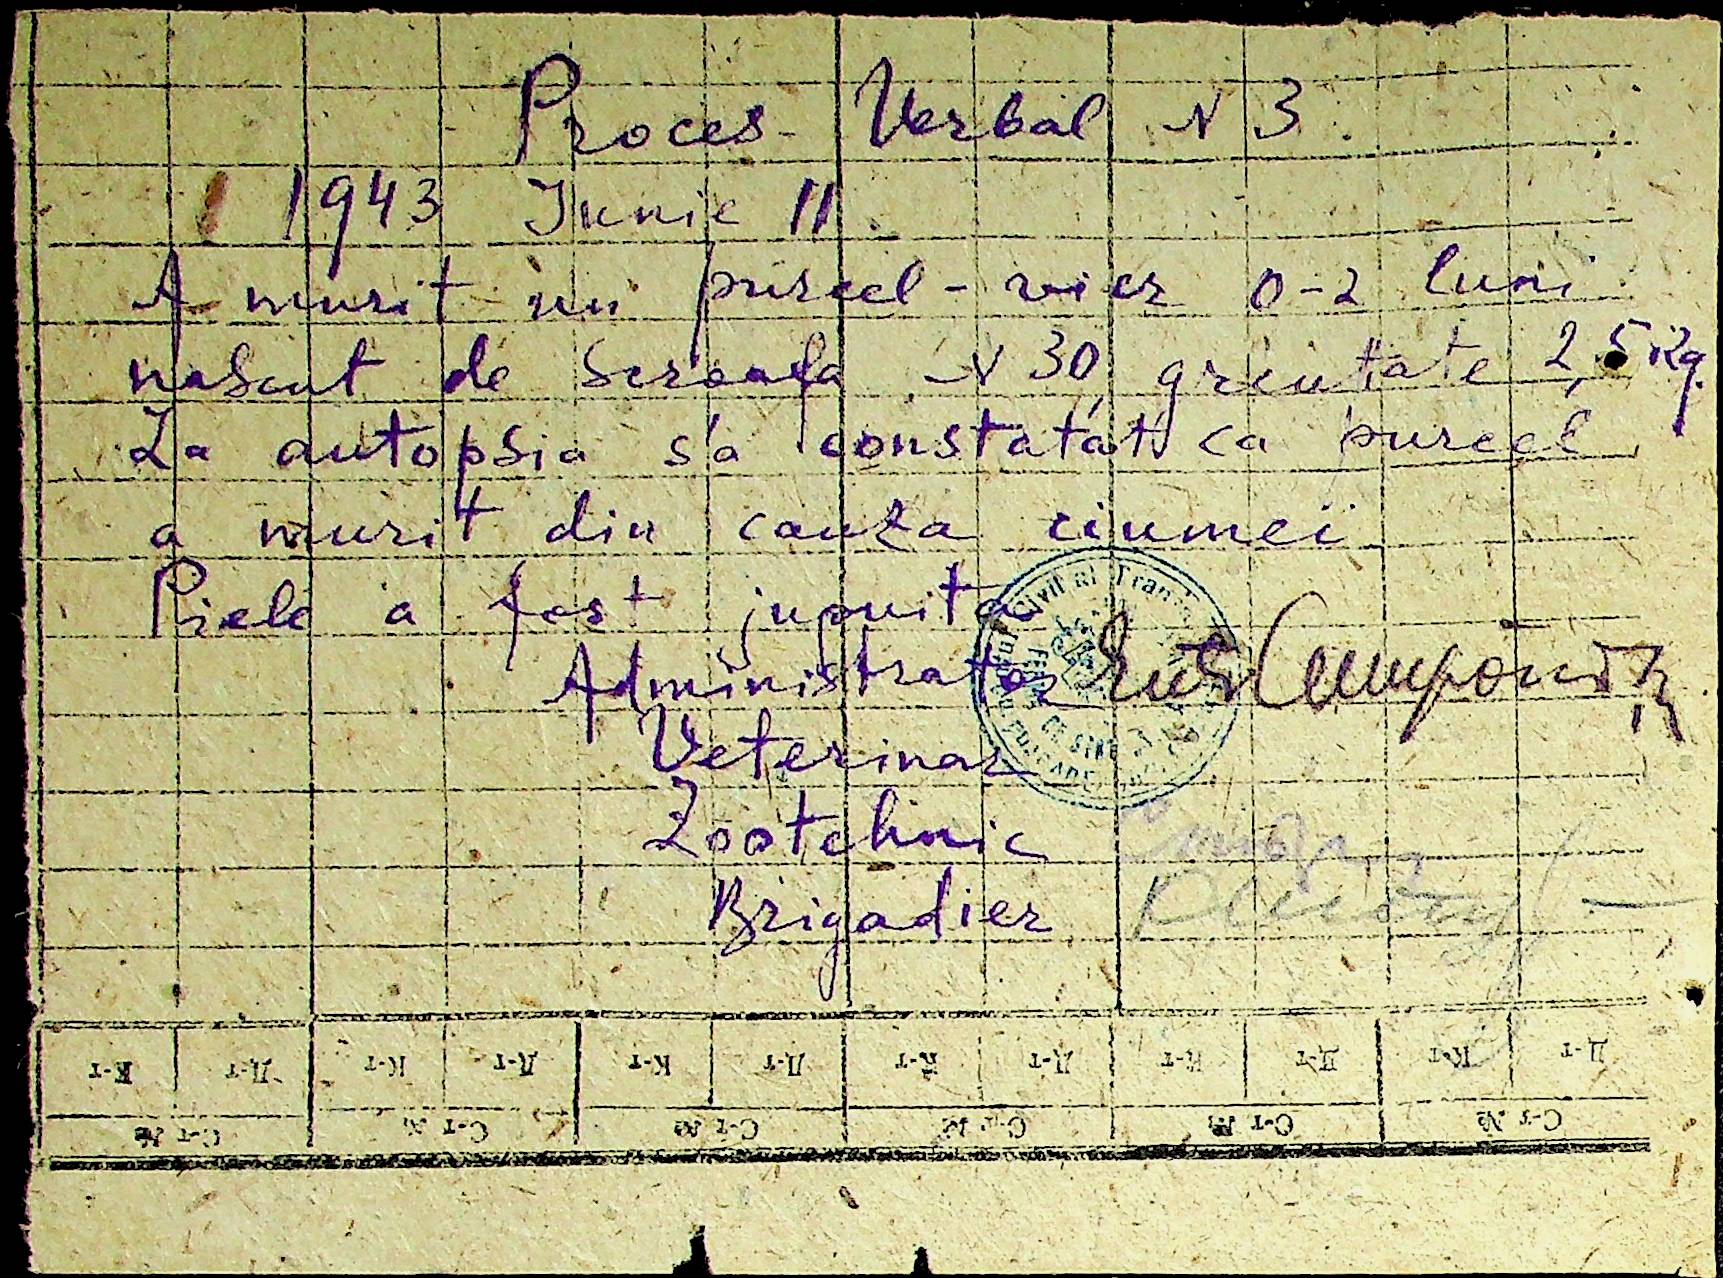 Proces-Verbal N 3.
1943 Iunie 11.
A murit un purcel-vier 0-2 luni
nascut de scroafa N 30, greutate 2,5 kg.
La autopsia s'a constatat ca purcel
a murit din cauza ciumei
Piele a fost jupuita
Administrator
Veterinar
Zootehnic
Brigadier
К-т Д-т К-т Д-т К-т Д-т К-т Д-т К-т Д-т К-т Д-т
С-т № С-т № С-т № С-т № С-т № С-т №